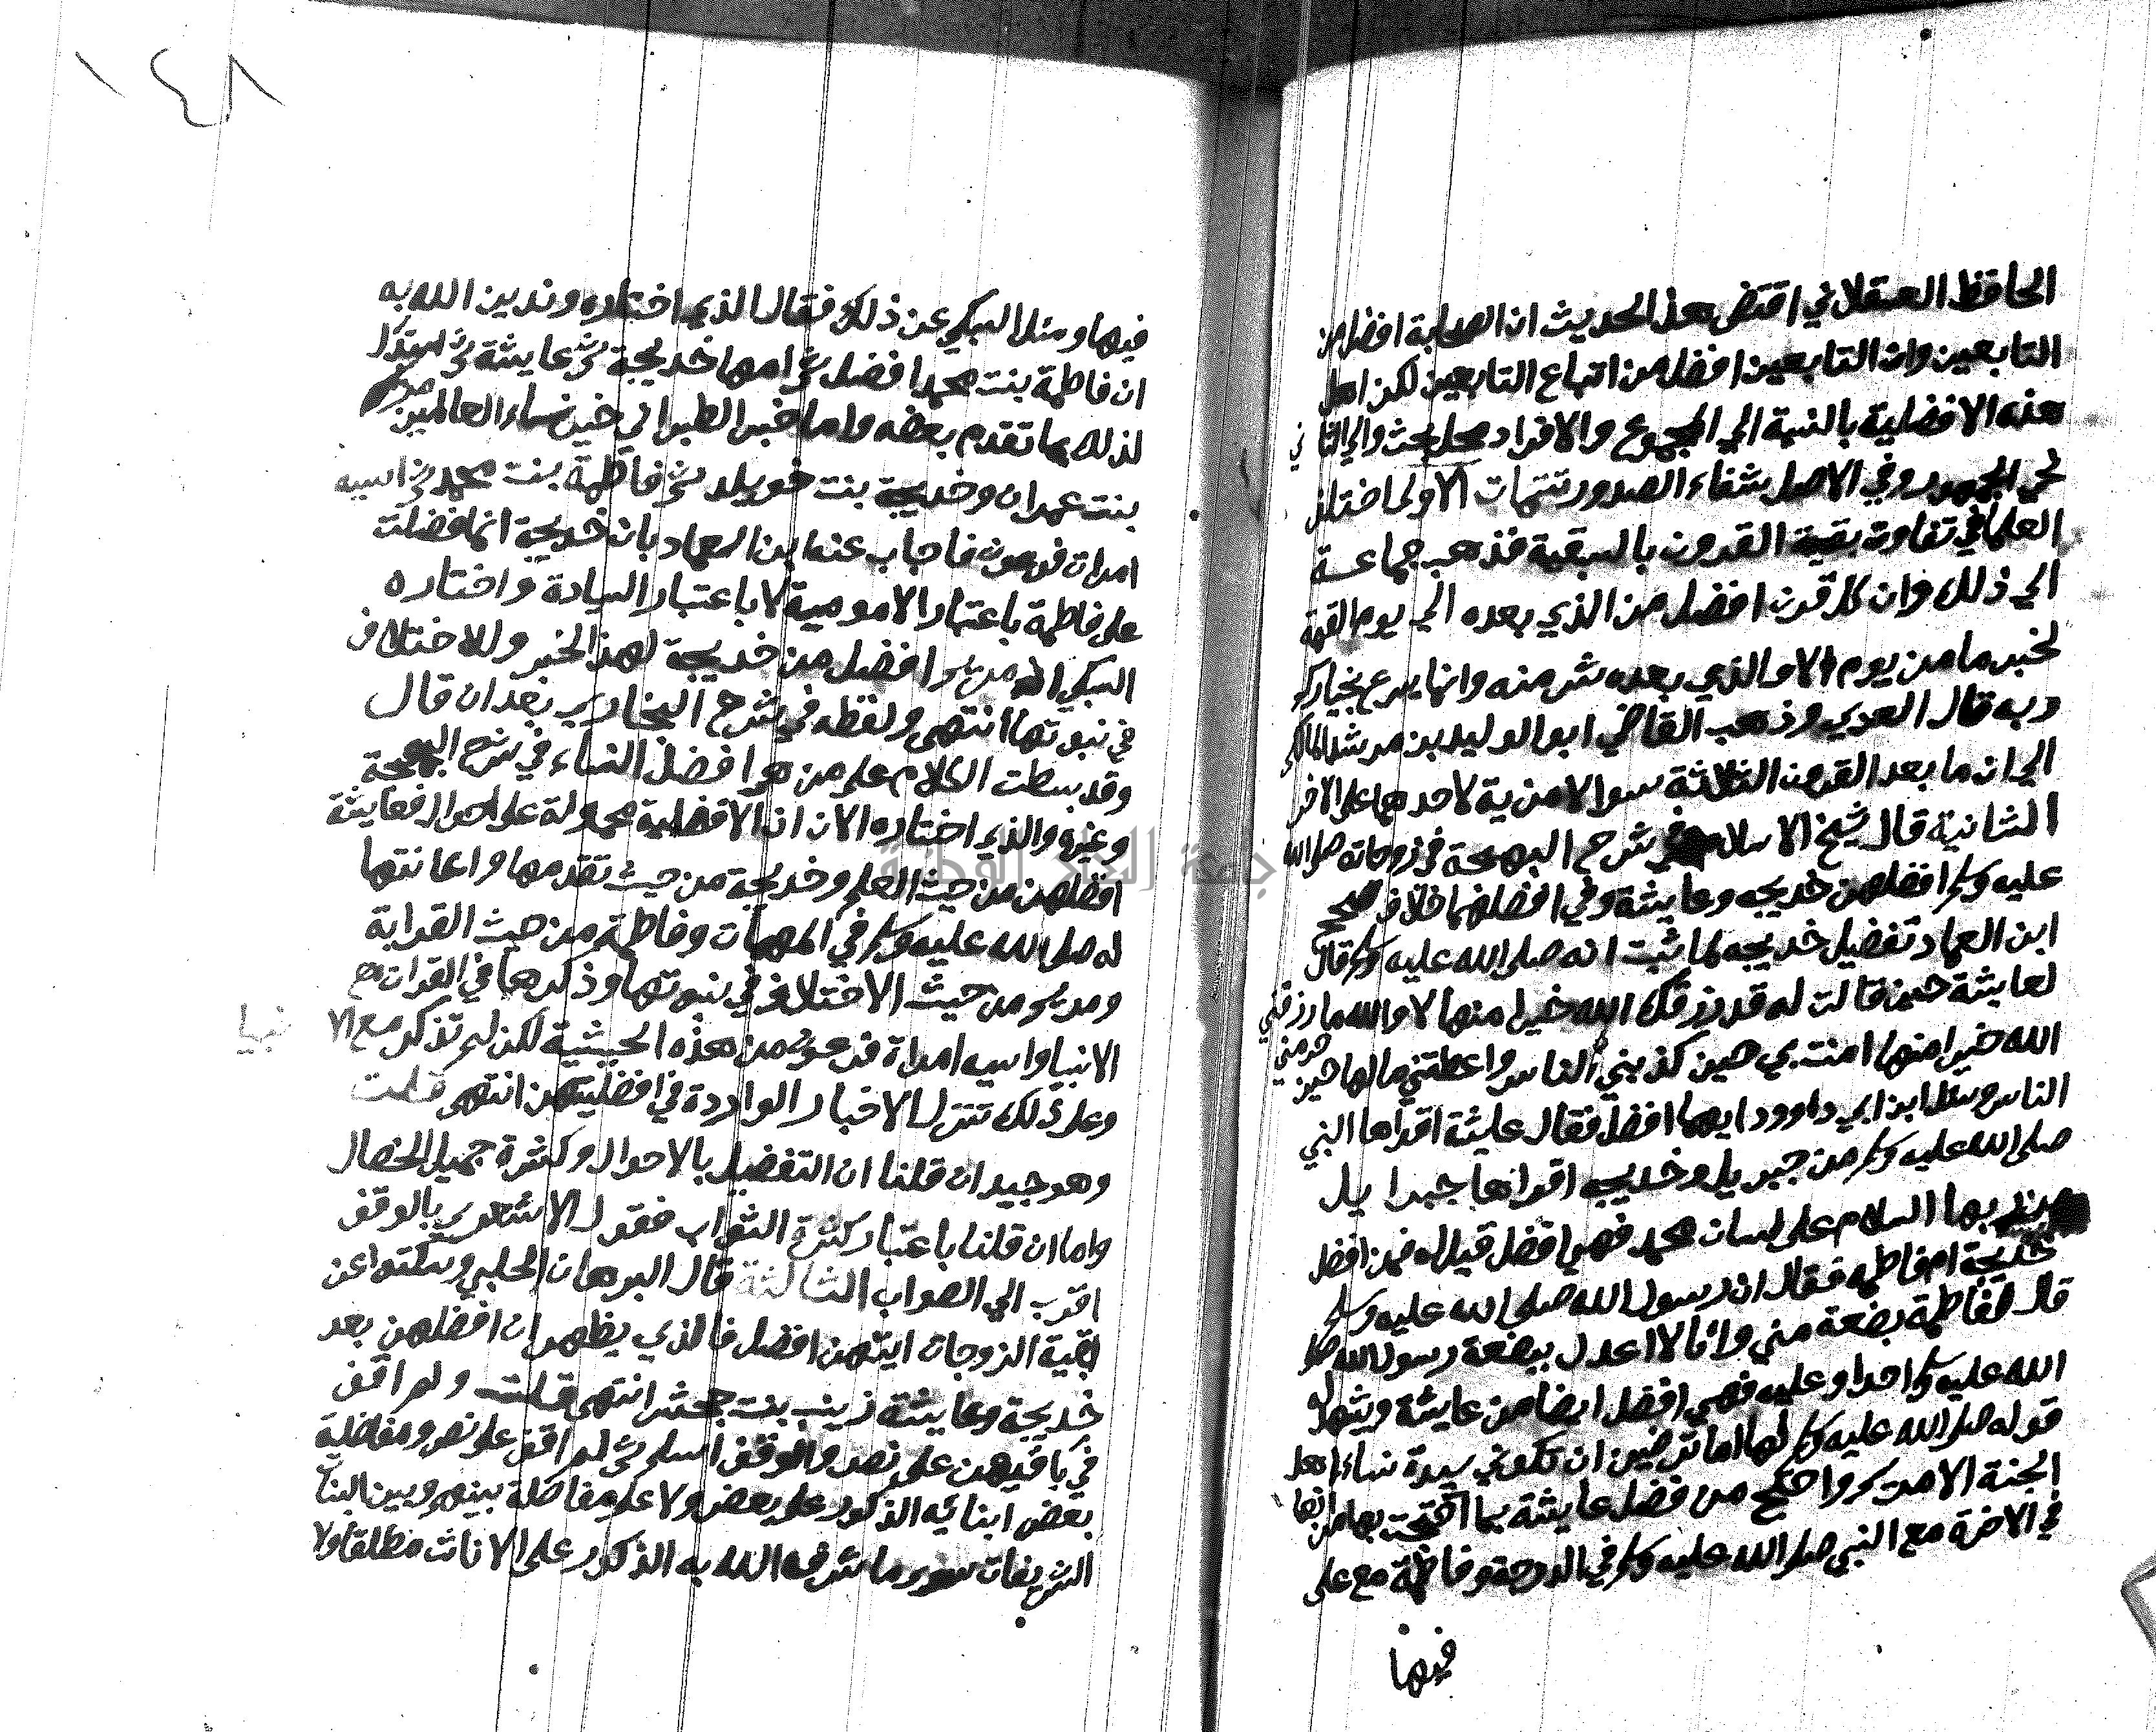 الحافظ العسقلاني اقتض هذا الحديث ان الصحابة افضل من
التابعين وان التابعين افضل من اتباع التابعين لكن اهل
هذه الافضلية بالنسبة الي المجموع والافراد محل بحث والي الثاني
نحي الجمهور وفي الاصل شفاء الصدور تتمات الاولي اختلف
العلما في تفاوت بقية القرون بالسبقية فذهب جماعة
الي ذلك وان كل قرن افضل من الذي بعده الي يوم القيمة
لخبر ما من يوم الا والذي بعده شر منه وانما يسرع بخياركم
وبه قال العدي وذهب القاضي ابو الوليد بن مرشد المالكي
الي ان ما بعد القرون الثلاثة سوا لا مزية لاحدهما علي الاخر
الثانية قال شيخ الاسلام في شرح البهجة في زوجاته صلي الله
عليه وسلم افضلهن خديجه وعايشة وفي افضلهما خلاف صحح
ابن العماد تفضيل خديجه لما ثبت انه صلي الله عليه وسلم قال
لعايشة حين قالت له قد رزقك الله خيرا منها لا والله ما رزقني
الله خيرا منها امنت بي حين كذبني الناس واعطتني مالها حين حرمني
الناس وسئل ابن ابي داوود ايهما افضل فقال عايشة اقراها النبي
صلي الله عليه وسلم من جبريل وخديجه اقراها جبرايل
من ربها السلام علي لسان محمد فهي افضل قيل له فمن افضل
خديجة ام فاطمه فقال ان رسول الله صلي الله عليه وسلم
قال فاطمة بضعة مني وانا لا اعدل ببضعة رسول الله صلي
الله عليه وسلم احدا وعليه فهي افضل ايضا من عايشة ويشهد له
قوله صلي الله عليه وسلم لها اما ترضين ان تكوني سيدة نساء اهل
الجنة الا مريم واحتج من فضل عايشة بما احتجت به من انها
في الاخرة مع النبي صلي الله عليه وسلم في الدرجة وفاطمة مع علي
فيها
١٤٨
فيها وسئل السبكي عن ذلك فقال الذي اختاره وندين الله به
ان فاطمة بنت محمد افضل ثم امها خديجة ثم عايشة ثم استدل
لذلك بما تقدم بعضه واما خبر الطبراني خير نساء العالمين مريم
بنت عمران وخديجة بنت خويلد ثم فاطمة بنت محمد ثم اسيه
امرات فرعون فاجاب عنه ابن العماد بان خديجة انما فضلت
علي فاطمة باعتبار الامومية لا باعتبار السيادة واختاره
السبكي ان مريم افضل من خديجة لهذا الخبر وللاختلاف
في نبوتها انتهي ولفظه في شرح البخاري بعد ان قال
وقد بسطت الكلام علي من هو افضل النساء في شرح البهجة
وغيره والذي اختاره الان ان الافضلية محمولة علي احوال فعايشة
افضلهن من حيث العلم وخديجة من حيث تقدمها واعانتها
له صلي الله عليه وسلم في المهمات وفاطمة من حيث القرابة
ومريم من حيث الاختلاف في نبوتها وذكرها في القران مع
الانبيا واسيه امراة فرعون من هذه الحيثية لكن لم تذكر مع الانبيا
وعلي ذلك تتنزل الاخبار الواردة في افضليتهن انتهي قلت
وهو جيد ان قلنا ان التفضيل بالاحوال وكثرة جميل الخصال
واما ان قلنا باعتبار كثرة الثواب فقول الاشعري بالوقف
اقرب الي الصواب الثالثة قال البرهان الحلبي وسكتوا عن
بقية الزوجات ايتهن افضل فالذي يظهر ان افضلهن بعد
خديجة وعايشة زينب بنت جحش انتهي قلت ولم اقف
في باقيهن علي نص والوقف اسلم ثم لم اقف علي نص ومفاضلة
بعض ابنائه الذكور علي بعض ولا علي مفاضلة بينهم وبين البنات
الشريفات سوي ما شرف الله به الذكور علي الاناث مطلقا ولا